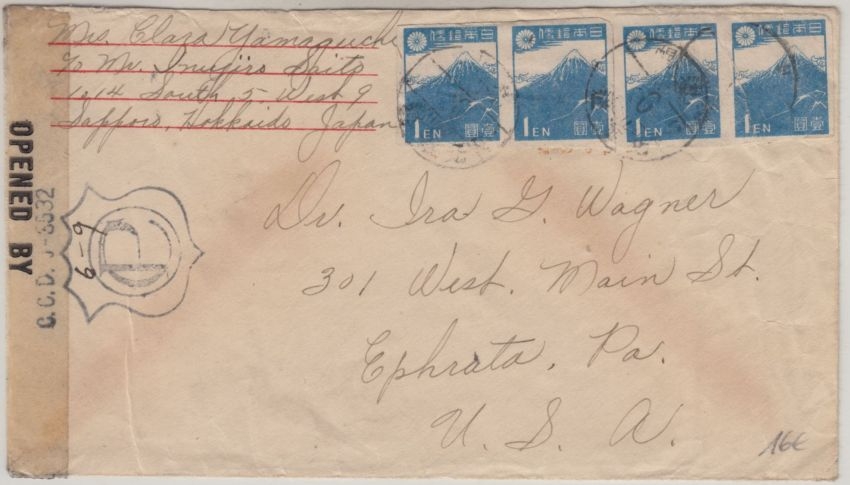 Mrs. Clara Yamaguchi
% Mr. Inujiro Saito
1014 South 5 West 9
Sapporo, Hokkaido, Japan
日本郵便 日本郵便 日本郵便 日本郵便
1 EN 壹圓 1 EN 壹圓 1 EN 壹圓 1 EN 壹圓
Dr. Ira G. Wagner
301 West. Main St.
Ephrata, Pa.
U. S. A.
OPENED BY
C.C.D. J-3532
6-9
P
16€